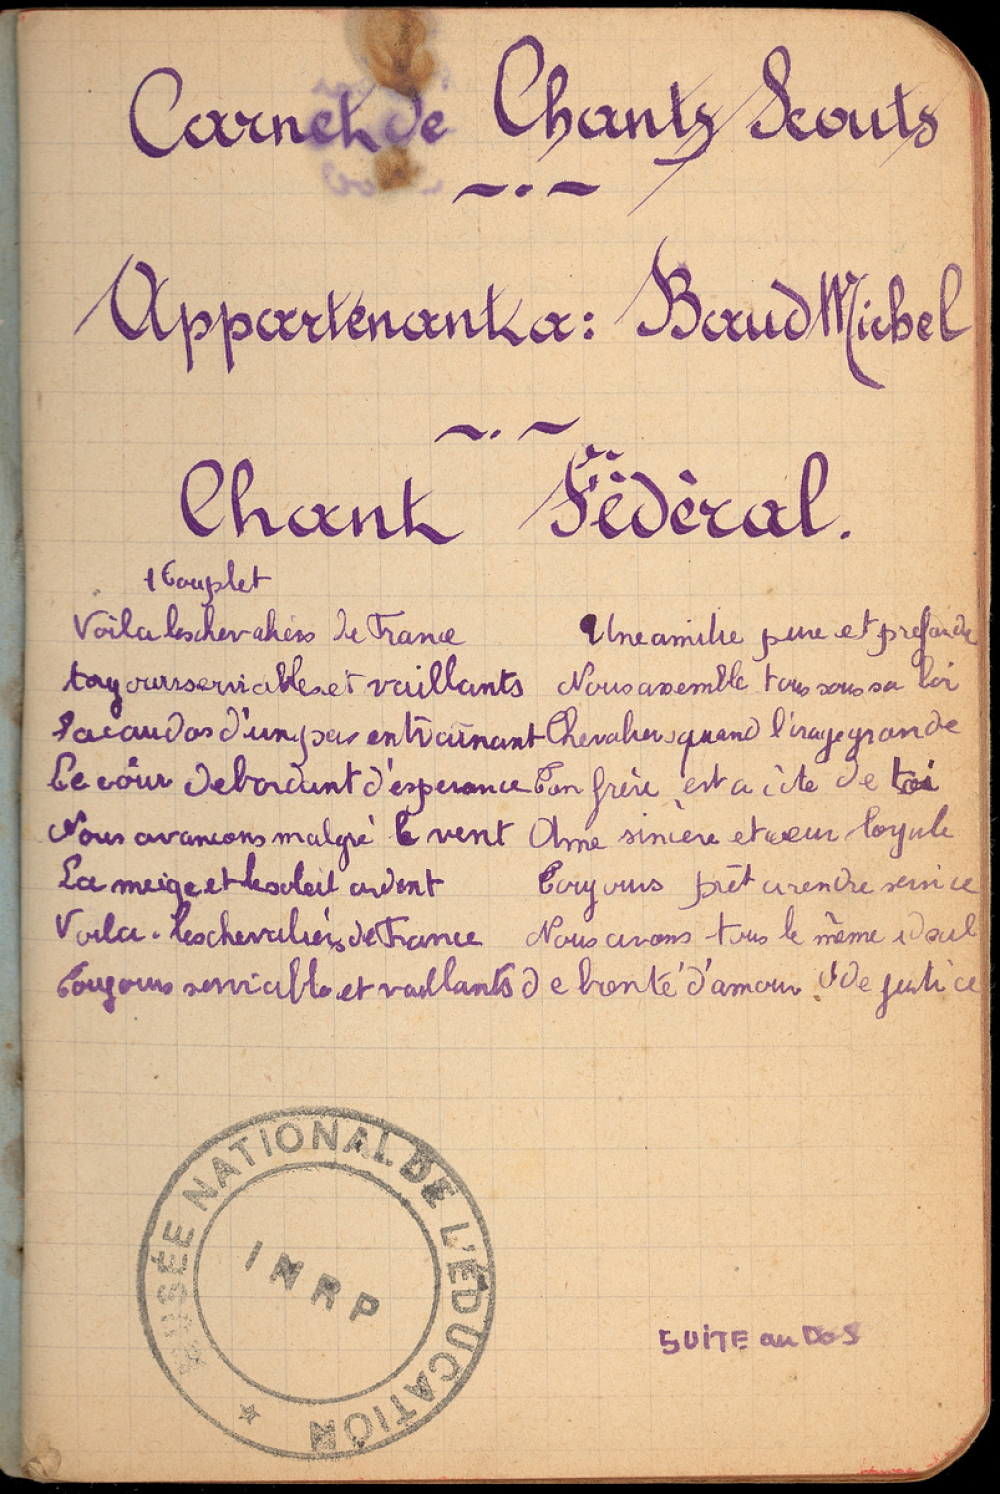 Carnet de Chants Scouts
Appartenant a: Baud Michel
Chant Fédéral.
1 Couplet
Voila les chevaliers de France
toujours serviables et vaillants
Sac au dos d'un pas entrainant
Le cœur debordant d'esperance
Nous avancons malgré le vent
La neige et le soleil ardent
Voila les chevaliers de France
Toujours serviables et vaillants
Une amitie pure et profonde
Nous assemble tous sous sa loi
Chevaliers quand l'orage gronde
Ton frère est a côte de toi
Ame sincère et cœur loyale
Toujours prêt a rendre service
Nous avons tous le même ideal
de bonté d'amour de justice
MUSÉE NATIONAL DE L'ÉDUCATION
INRP
SUITE au DOS